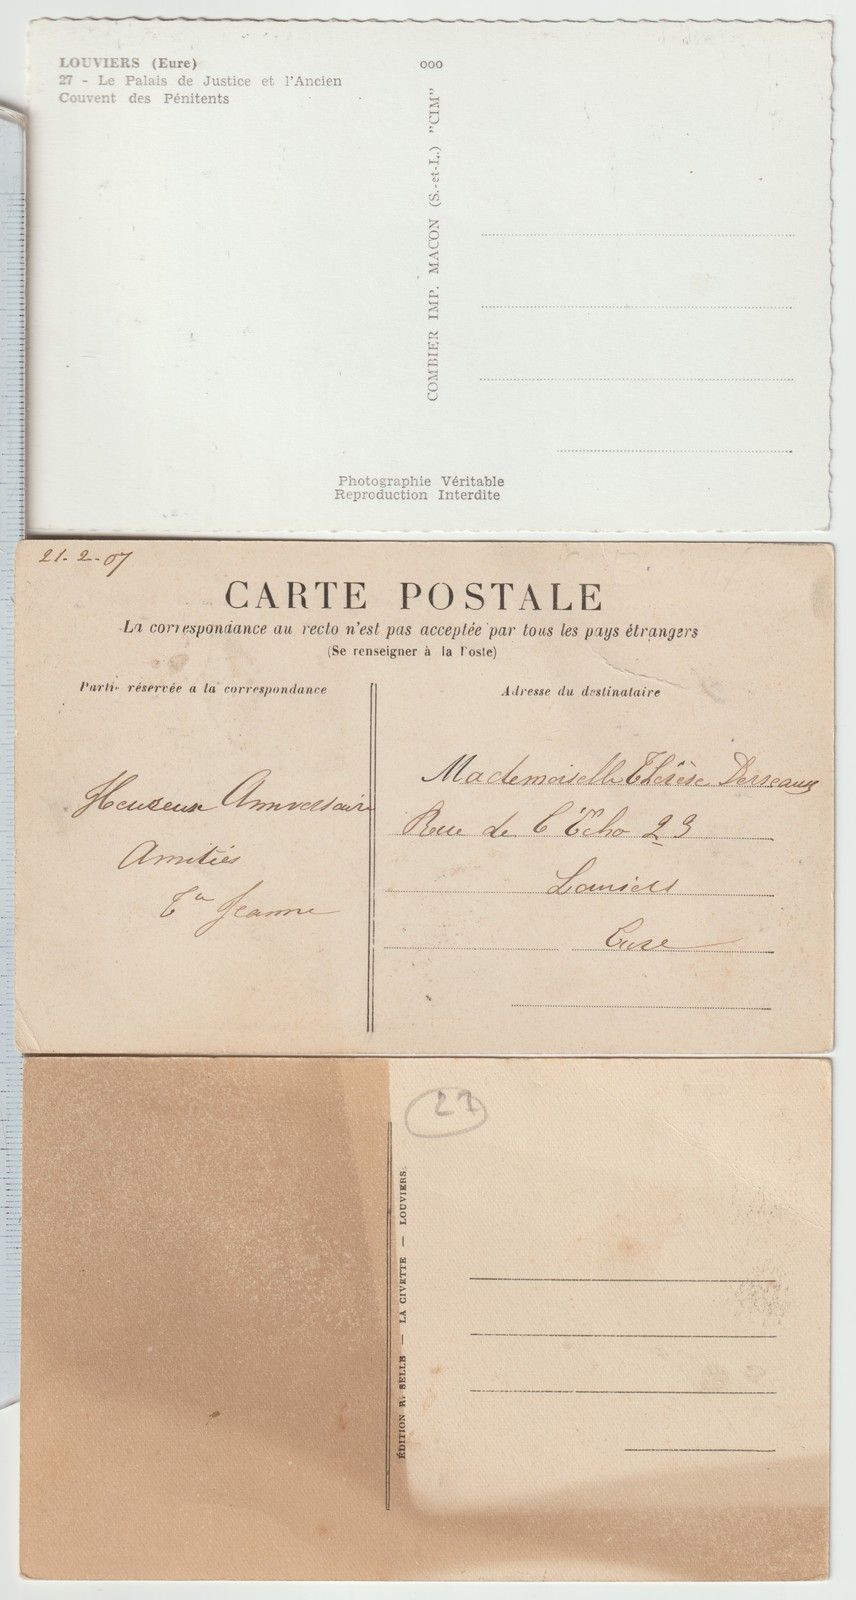 LOUVIERS (Eure)
27 - Le Palais de Justice et l'Ancien
Couvent des Pénitents
ooo
COMBIER IMP. MACON (S.-et-L.) "CIM"
Photographie Véritable
Reproduction Interdite
21-2-07
CARTE POSTALE
La correspondance au recto n'est pas acceptée par tous les pays étrangers
(Se renseigner à la Poste)
Partie réservée a la correspondance
Adresse du destinataire
Heureux Anniversaire
Amitiés
Jeanne
Mademoiselle Thérèse
Rue de l'Echo 23
Louviers
Eure
27
ÉDITION R. SELLE — LA CIVETTE — LOUVIERS.